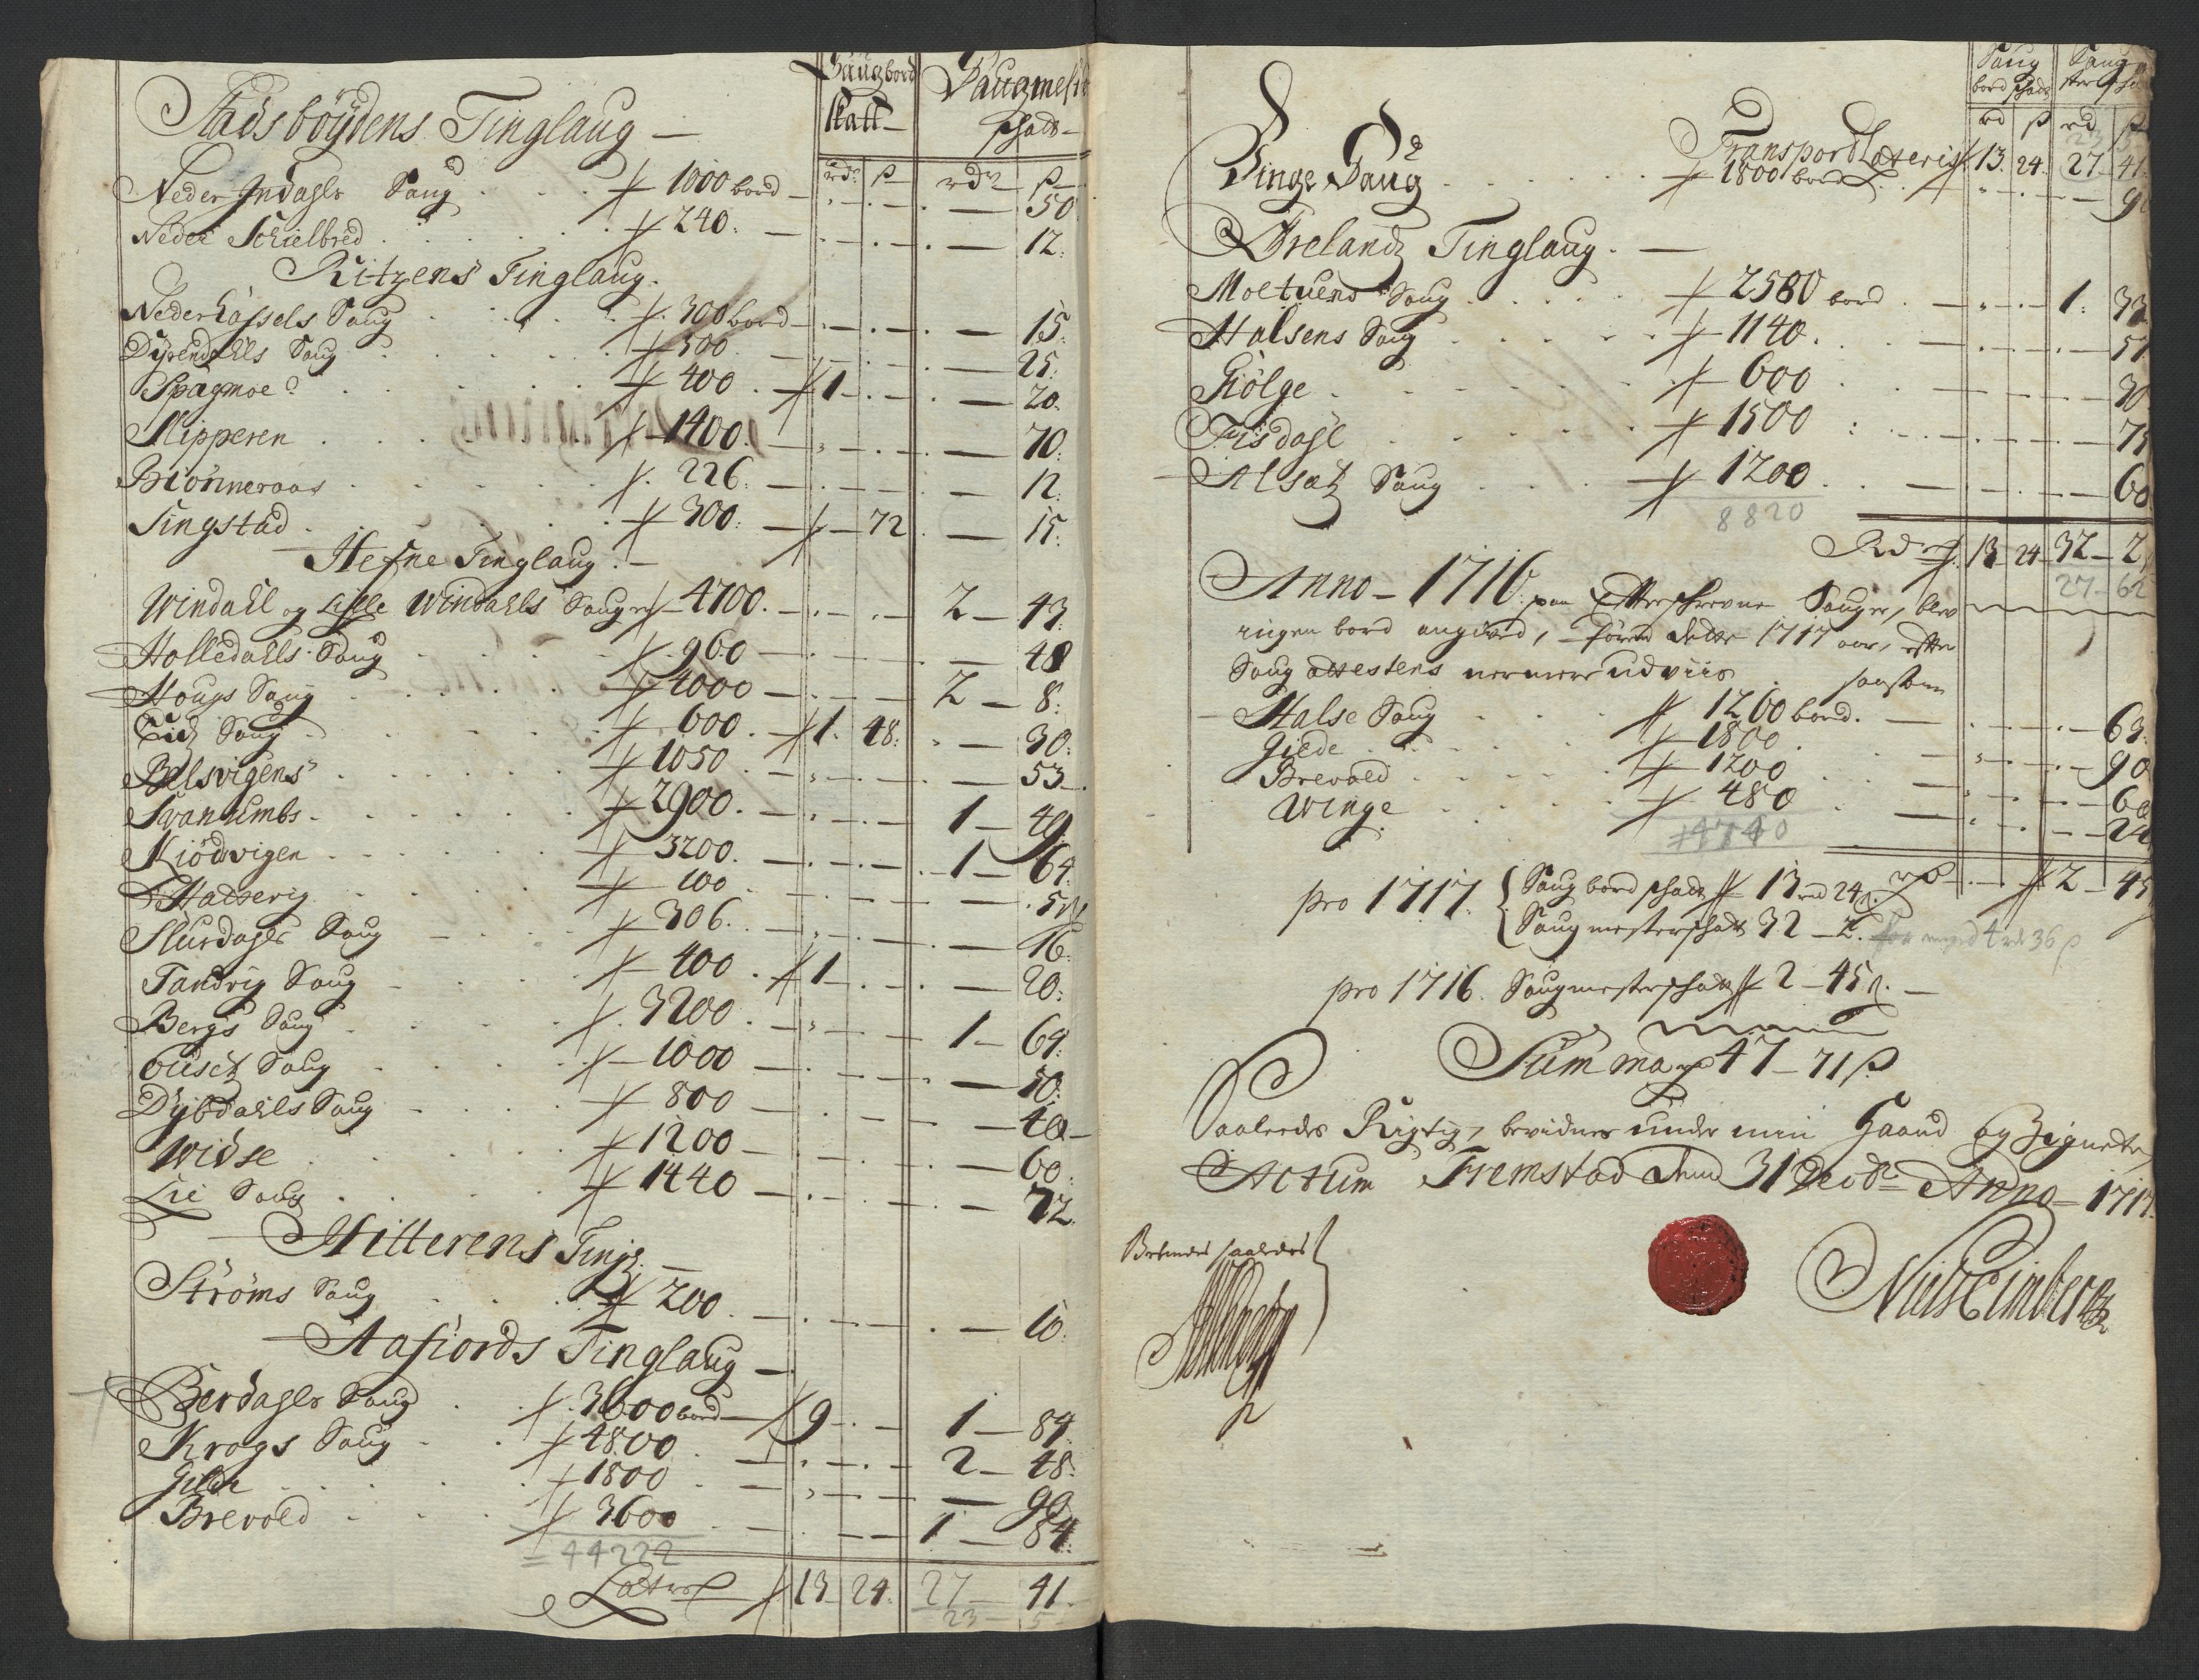 Saugbord Skatt — Saugmester schatt —
Stadsböÿdens Tinglaug —
rdr ß rdr ß
Neder Indahls Saug . . . 1000 bord — 50
Neder Schielbred . . . 240. — 12.
Ritzens Tinglaug.
Nederhassels Saug . . . 300 bord — 15.
Dÿrendahls Saug . . . 500 . — 25.
Spagmoe . . . 400 . 1 — 20.
Slipperen . . . 1400. — 70.
Biörneraas . . . 226. — 12.
Singstad . . . 300. — 72 — 15.
Hefne Tinglaug.
Windahl og Lisle Windahls Sauger 4700. — 2 — 43.
Holledahls Saug . . . 960 — 48
Hougs Saug . . . 4000 — 2 — 8.
Eidz Saug . . . 600 . 1. 48. — 30.
Belsvigens . . . 1050 — 53.
Svanumbs . . . 2900. — 1 — 49.
Kiödvigen . . . 3200. — 1 — 64.
Hadserig . . . 100 — 5
Slurdahls Saug . . . 306. — 16.
Tandrig Saug . . . 400 . 1 — 20.
Bergs Saug . . . 3200 . — 1 — 64.
Ouset Saug . . . 1000 — 50.
Dÿbdahls Saug . . . 800 — 40 —
Widse . . . 1200 — 60.
Lie Saug . . . 1440 — 72.
Hitterens Tingl. —
Ströms Saug . . . 200. — 10.
Aafiords Tinglaug —
Berdahls Saug . . . 3600 bord — 9 — 1 — 84.
Krogs Saug . . . 4800 — 2 — 48.
Gilde . . . 1800 — 90
Brevold . . . 3600 — 1 — 84.
= 44222
Lateris 13 24. 27 — 41.
23 — 5
Saug bord schatt Saugmester schatt
rd ß rd ß
Transport Lateris 13. 24. 27 — 41.
Winge Saug . . . 1800 bord — 90
Ørelandz Tinglaug . —
Moetuens Saug . . . 2580 bord . — 1. 33
Halsens Saug . . . 1140 . — 57
Giölge . . . 600 . — 30
Fisdahl . . . 1500 . — 75
Alsatz Saug . . . 1200 . — 60
8820
Rdr 13 24 32 — 2
27 — 62
Anno — 1716. paa Efterschrevne Sauger, blev
ingen bord angived, förend dette 1717 aar, efter
Saug attestens nermere udviis . saasom
Halse Saug . . . 1260 bord. — 63.
Gilde . . . 1800 . — 90
Brevold . . . 1200 . — 60
Winge . . . 480 . — 24
4740
2 — 45
pro 1717. Saug bord schatt 13 rd 24 ß.
Saug mesterschatt 32 — 2. 4 rdr 36 ß
pro 1716. Saugmesterschatt 2 — 45 ß. —
Summa 47 — 71 ß
Saaledes Rigtig, bevidner under min Haand og Zignete
Actum Fremstad den 31 Decbr Anno — 1717.
Bekiendes saaledes
Niels Eimbertz